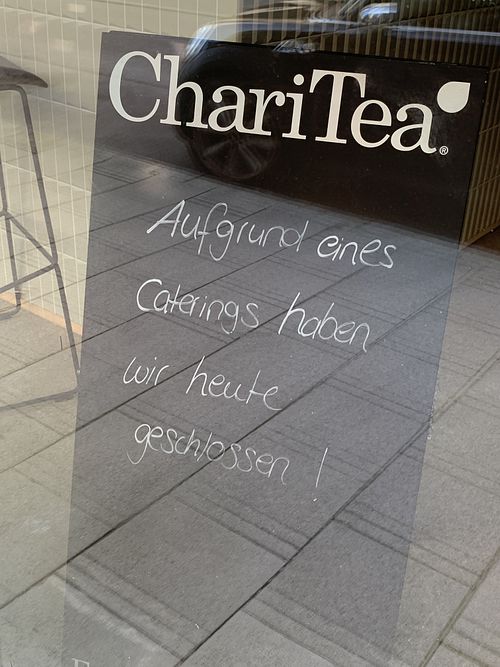 ChariTea®
Aufgrund eines
Caterings haben
wir heute
geschlossen!